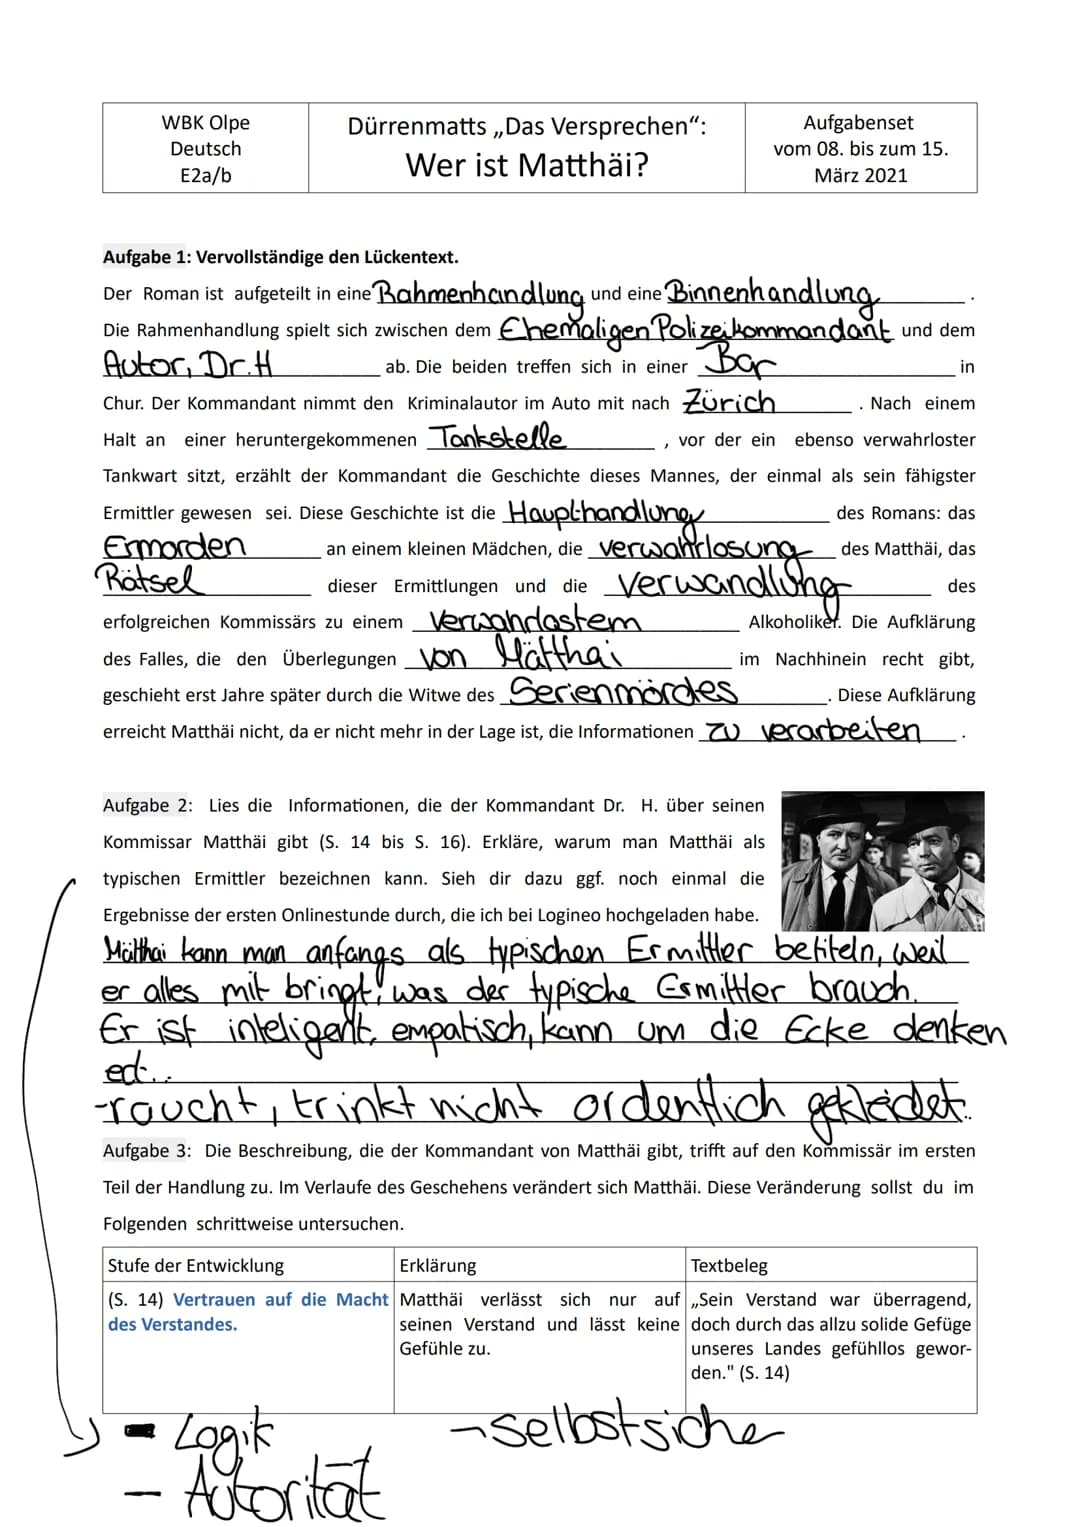 WBK Olpe
Deutsch
E2a/b
Dürrenmatts „Das Versprechen“:
Wer ist Matthäi?
Aufgabenset
vom 08. bis zum 15.
März 2021
Aufgabe 1: Vervollständige den Lückentext.
Der Roman ist aufgeteilt in eine Rahmenhandlung und eine Binnenhandlung.
Die Rahmenhandlung spielt sich zwischen dem Ehemaligen Polizeikommandant und dem
Autor, Dr.H ab. Die beiden treffen sich in einer Bar in
Chur. Der Kommandant nimmt den Kriminalautor im Auto mit nach Zürich. Nach einem
Halt an einer heruntergekommenen Tankstelle, vor der ein ebenso verwahrloster
Tankwart sitzt, erzählt der Kommandant die Geschichte dieses Mannes, der einmal als sein fähigster
Ermittler gewesen sei. Diese Geschichte ist die Haupthandlung des Romans: das
Ermorden an einem kleinen Mädchen, die verwahrlosung des Matthäi, das
Rätsel dieser Ermittlungen und die verwandlung des
erfolgreichen Kommissärs zu einem verwahrlostem Alkoholiker. Die Aufklärung
des Falles, die den Überlegungen von Mätthai im Nachhinein recht gibt,
geschieht erst Jahre später durch die Witwe des Serienmördes. Diese Aufklärung
erreicht Matthäi nicht, da er nicht mehr in der Lage ist, die Informationen zu verarbeiten.
Aufgabe 2: Lies die Informationen, die der Kommandant Dr. H. über seinen
Kommissar Matthäi gibt (S. 14 bis S. 16). Erkläre, warum man Matthäi als
typischen Ermittler bezeichnen kann. Sieh dir dazu ggf. noch einmal die
Ergebnisse der ersten Onlinestunde durch, die ich bei Logineo hochgeladen habe.
Mätthai kann man anfangs als typischen Ermittler betiteln, weil
er alles mit bringt, was der typische Ermittler brauch.
Er ist inteligent, empatisch, kann um die Ecke denken
ect..
-raucht, trinkt nicht ordentlich gekleidet.
Aufgabe 3: Die Beschreibung, die der Kommandant von Matthäi gibt, trifft auf den Kommissär im ersten
Teil der Handlung zu. Im Verlaufe des Geschehens verändert sich Matthäi. Diese Veränderung sollst du im
Folgenden schrittweise untersuchen.
Stufe der Entwicklung
Erklärung
Textbeleg
(S. 14) Vertrauen auf die Macht
des Verstandes.
Matthäi verlässt sich nur auf
seinen Verstand und lässt keine
Gefühle zu.
„Sein Verstand war überragend,
doch durch das allzu solide Gefüge
unseres Landes gefühllos gewor-
den." (S. 14)
- Logik
- selbstsicher
- Autorität